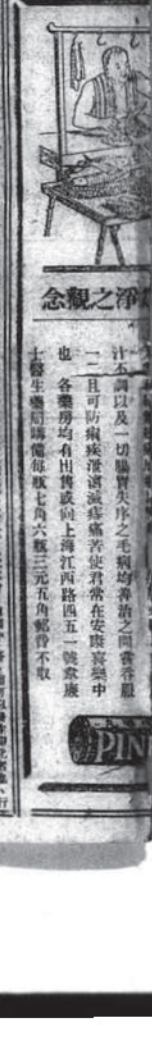 淨之觀念
汁不調以及一切腸胃失序之毛病均善治之間嘗吞服
一二且可防痢疾泄瀉滅痔痛苦使君常在安康喜樂中
也 各藥房均有出售或向上海江西路四五一號韋廉
士醫生藥局購備每瓶七角六瓶三元五角郵費不取
PIN